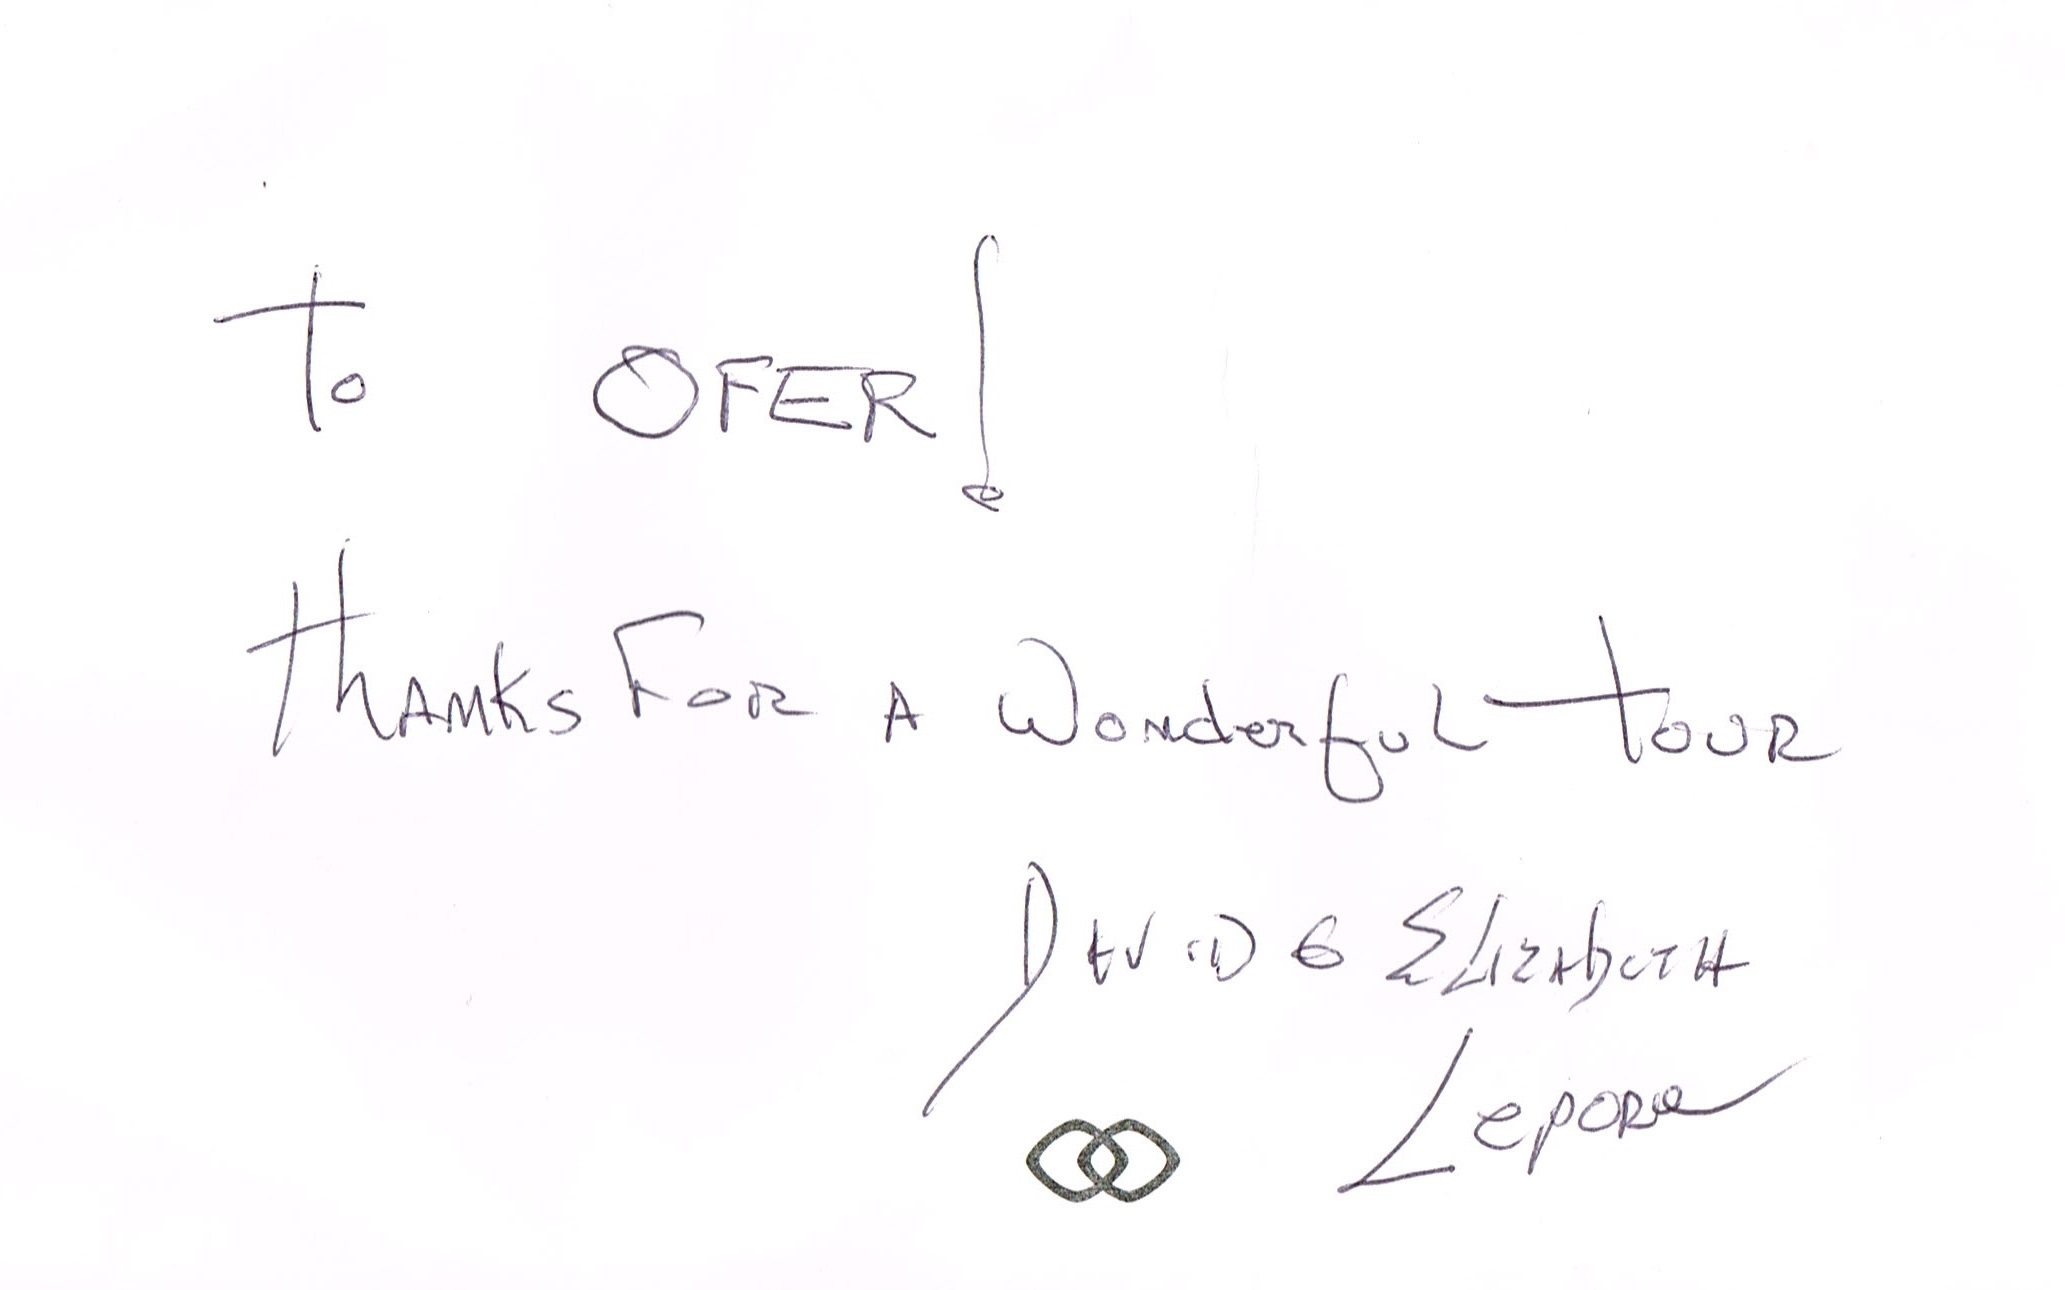 To OFER!
Thanks For A Wonderful tour
David & Elizabeth
Lepore